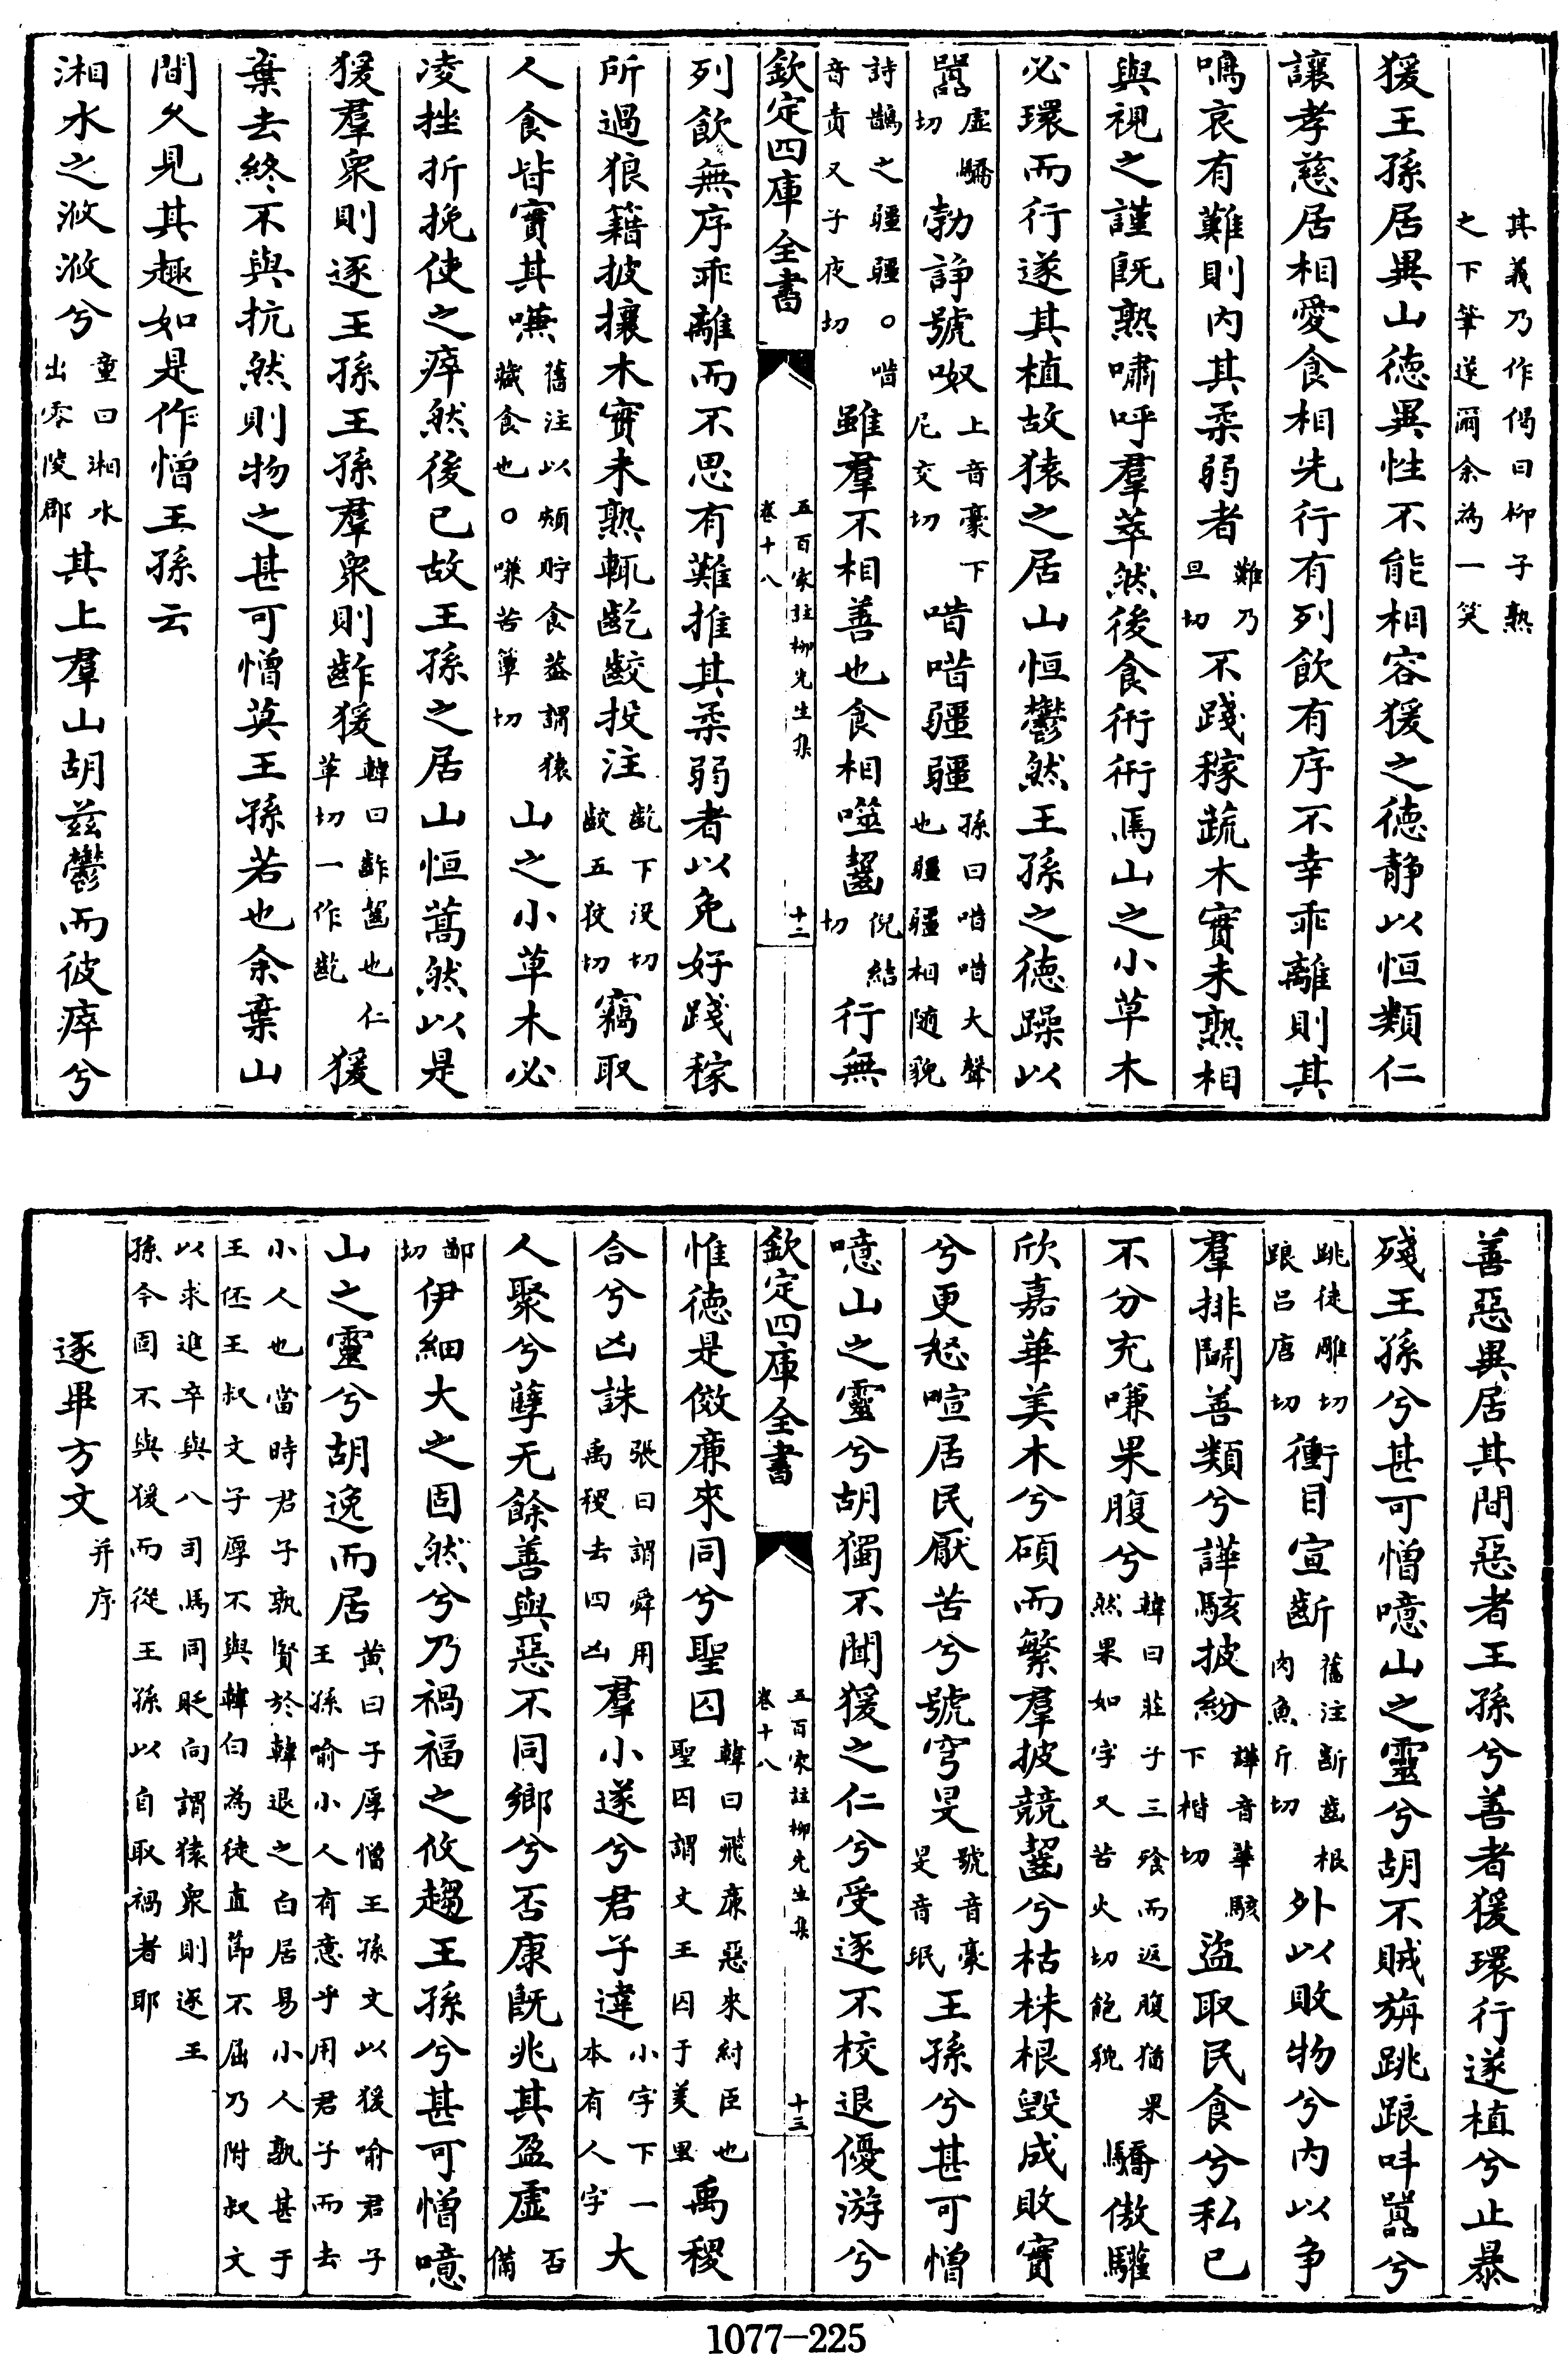 其義乃作偈曰柳子熟
之下筆遂爾余為一笑
猨王孫居異山徳異性不能相容猨之徳静以恒類仁
讓孝慈居相愛食相先行有列飲有序不幸乖離則其
鳴哀有難則内其柔弱者難乃旦切不踐稼蔬木實未熟相
與視之謹既熟嘯呼羣萃然後食衎衎焉山之小草木
必環而行遂其植故猿之居山恒鬱然王孫之徳躁以
囂虛驕切勃諍號呶上音豪下尼交切唶唶疆疆孫曰唶唶大聲也疆疆相随貌
詩鵲之疆疆○唶音責又子夜切雖羣不相善也食相噬齧倪結切行無
欽定四庫全書
五百家註柳先生集
卷十八
十二
列飲無序乖離而不思有難推其柔弱者以免好踐稼
所過狼籍披攘木實未熟輒齕齩投注齕下没切齩五狡切竊取
人食皆實其嗛舊注以頰貯食蓋謂猿藏食也○嗛苦簟切山之小草木必
凌挫折挽使之瘁然後已故王孫之居山恒蒿然以是
猨羣衆則逐王孫王孫羣衆則齚猨韓曰齚齧也仁革切一作齕猨
棄去終不與抗然則物之甚可憎莫王孫若也余棄山
間久見其趣如是作憎王孫云
湘水之浟浟兮童曰湘水出零陵郡其上羣山胡茲鬱而彼瘁兮
善惡異居其間惡者王孫兮善者猨環行遂植兮止暴
殘王孫兮甚可憎噫山之靈兮胡不賊旃跳踉叫囂兮
跳徒雕切踉吕唐切衝目宣齗舊注齗齒根肉魚斤切外以敗物兮内以争
羣排鬭善類兮譁駭披紛譁音華駭下楷切盜取民食兮私已
不分充嗛果腹兮韓曰莊子三飡而返腹猶果然果如字又苦火切飽貌驕傲驩
欣嘉華美木兮碩而繁羣披競齧兮枯株根毀成敗實
兮更怒喧居民厭苦兮號穹旻號音豪旻音珉王孫兮甚可憎
噫山之靈兮胡獨不聞猨之仁兮受逐不校退優游兮
欽定四庫全書
五百家註柳先生集
卷十八
十三
惟徳是傚亷來同兮聖囚韓曰飛亷惡來紂臣也聖囚謂文王囚于羑里禹稷
合兮凶誅張曰謂舜用禹稷去四凶羣小遂兮君子違小字下一本有人字大
人聚兮孽无餘善與惡不同鄉兮否康既兆其盈虛否備
鄙切伊細大之固然兮乃禍福之攸趨王孫兮甚可憎噫
山之靈兮胡逸而居黄曰子厚憎王孫文以猨喻君子王孫喻小人有意乎用君子而去
小人也當時君子孰賢於韓退之白居易小人孰甚于王伾王叔文子厚不與韓白為徒直節不屈乃附叔文
以求進卒與八司馬同貶向謂猿衆則逐王孫今固不與猨而從王孫以自取禍者耶
逐畢方文并序
1077-225